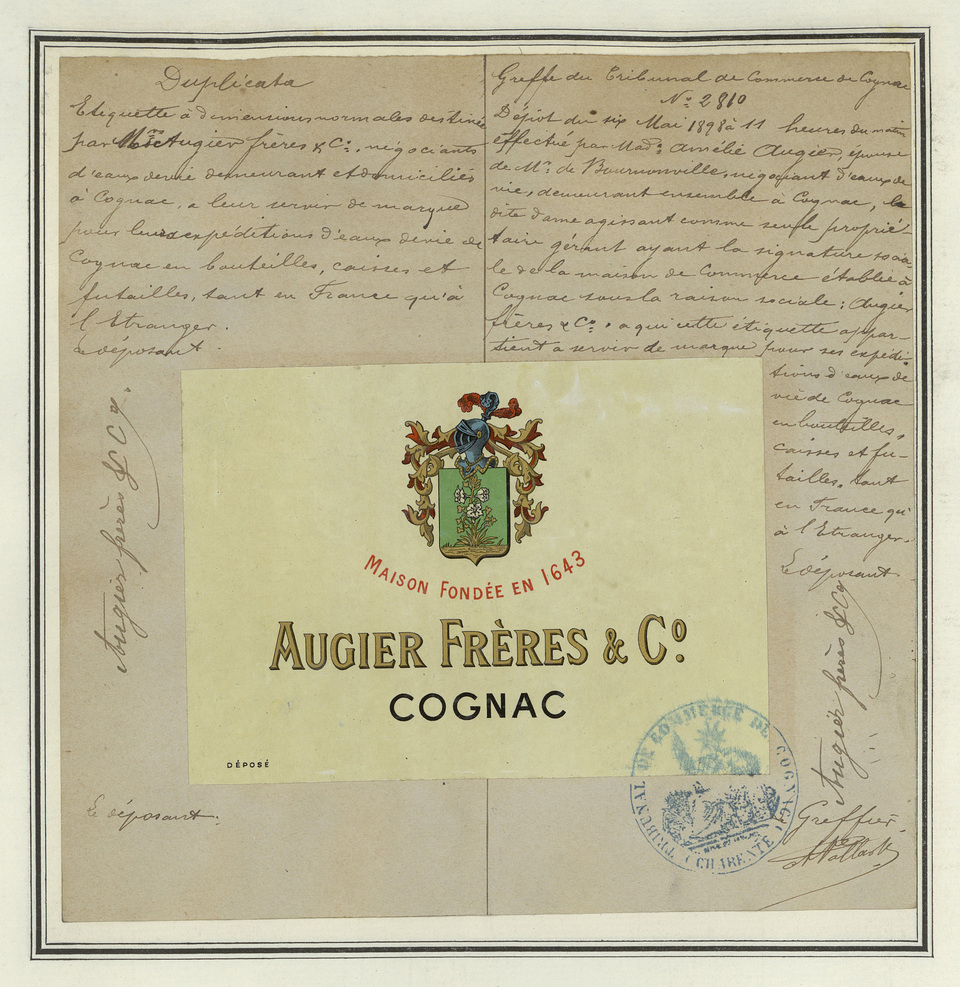 Duplicata
Etiquette à dimensions normales destinée
par Augier frères & Cie, négociants
d'eaux de vie demeurant et domiciliés
à Cognac, a leur servir de marque
pour leurs expéditions d'eaux de vie de
Cognac en bouteilles, caisses et
futailles, tant en France qu'à
l'Etranger.
Le déposant
Augier frères & Co
Le déposant.
Greffe du Tribunal de Commerce de Cognac
No 2810
Dépôt du six Mai 1898 à 11 heures du matin
effectué par Made Amélie Augier, épouse
de Mr. de Bournonville, négociant d'eaux de
vie, demeurant ensemble à Cognac, la
dite dame agissant comme seule proprié-
taire gérant ayant la signature socia
le de la maison de Commerce établie à
Cognac sous la raison sociale : Augier
frères & Co. a qui cette étiquette appar-
tient a servir de marque pour ses expédi-
tions d'eaux de
vie de Cognac
en bouteilles,
caisses et fu-
tailles. tant
en France qu'
à l'Etranger.
Le déposant
Augier frères & Co
Greffier.
MAISON FONDÉE EN 1643
AUGIER FRÈRES & Co
COGNAC
DÉPOSÉ
TRIBUNAL DE COMMERCE DE COGNAC
(CHARENTE)